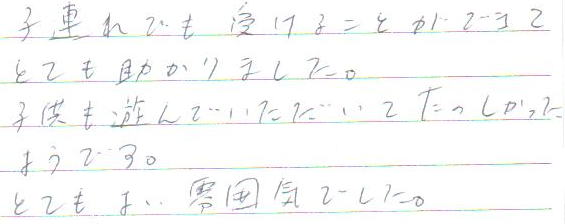 子連れでも受けることができて
とても助かりました。
子供も遊んでいただいてたのしかった
ようです。
とてもよい雰囲気でした。